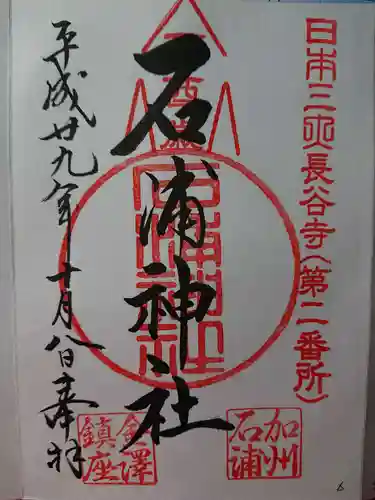 日本三大長谷寺（第二番所）
石浦神社
平成廿九年十月八日奉拝
加州
石浦
金澤
鎮座
6